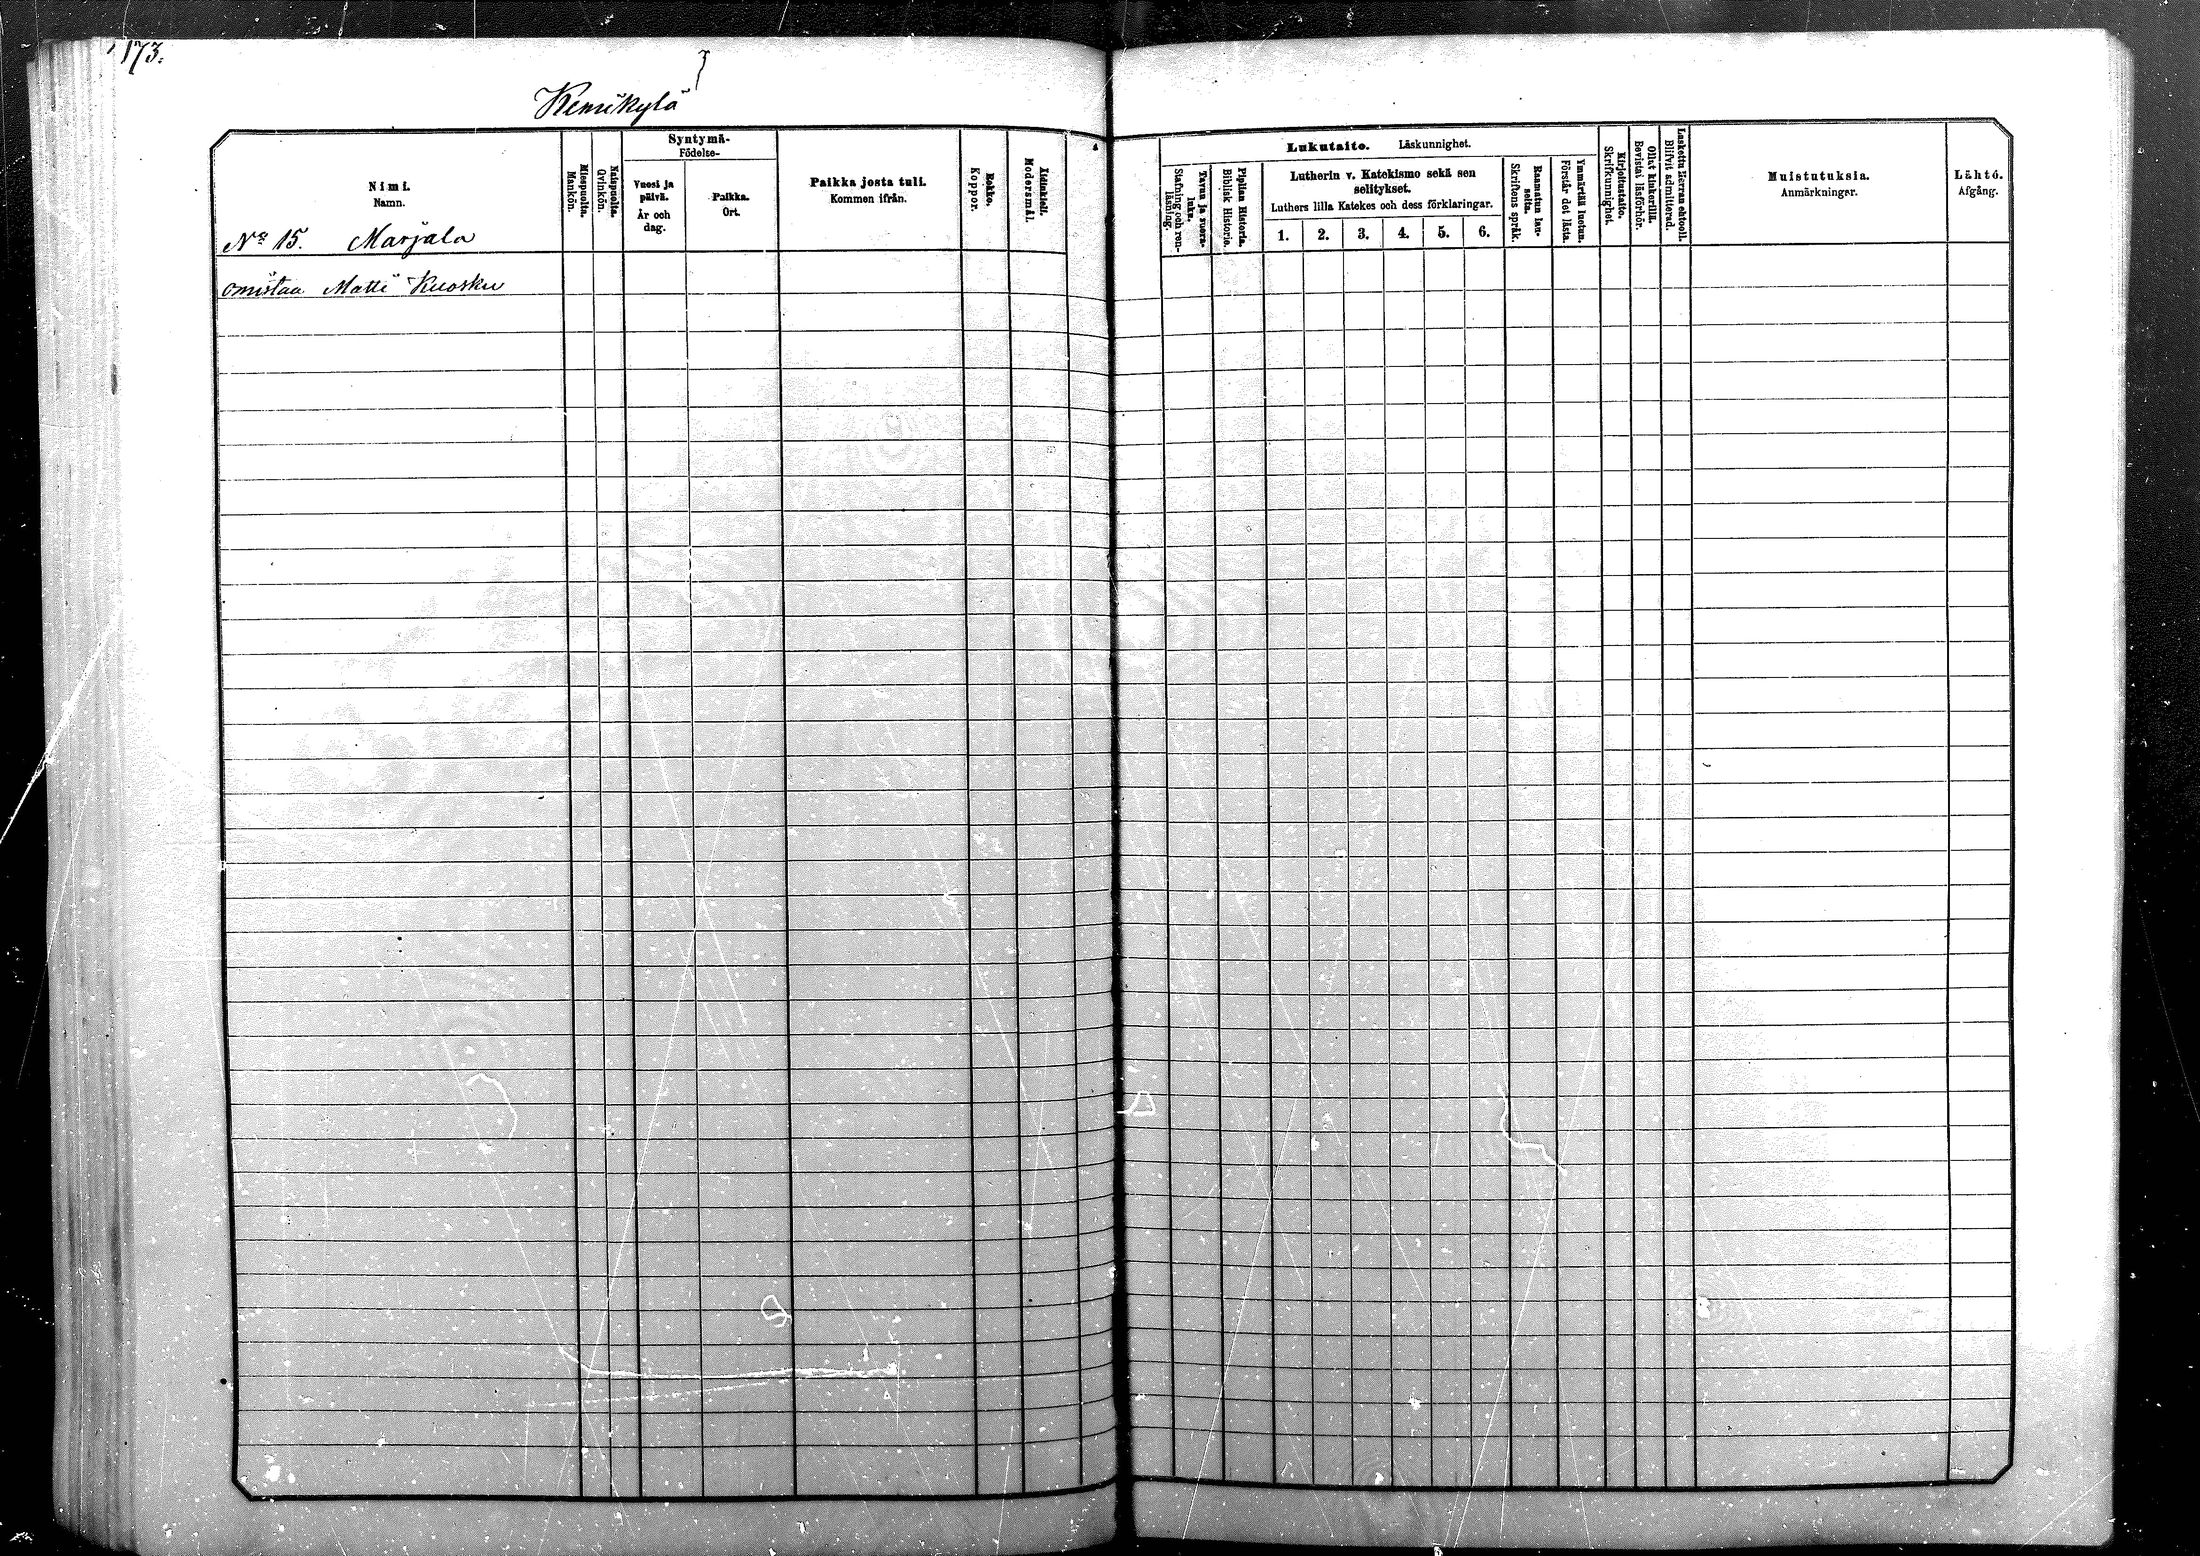 173.
Kemikylä
Syntymä-
Födelse-
Nimi.
Namn.
Miespuolta.
Mankön.
Naispuolta.
Qvinkön.
Vuosi ja
päivä.
År och
dag.
Paikka.
Ort.
Paikka josta tuli.
Kommen ifrån.
Rokko.
Koppor.
Äidinkieli.
Modersmål.
No 15. Marjala
omistaa Matti Kuosku
Lukutaito. Läskunnighet.
Tavuu ja suora-
luku.
Stafning och ren-
läsning.
Piplian Historia.
Biblisk Historie.
Lutherin v. Katekismo sekä sen
selitykset.
Luthers lilla Katekes och dess förklaringar.
1. 2. 3. 4. 5. 6.
Raamatun lau-
seita.
Skriftens språk.
Ymmärtää luetun.
Förstår det lästa.
Kirjoitustaito.
Skrifkunnighet.
Ollut kinkerillä.
Bevistat läsförhör.
Laskettu Herran ehtool.
Blifvit admitterad.
Muistutuksia.
Anmärkningar.
Lähtö.
Afgång.